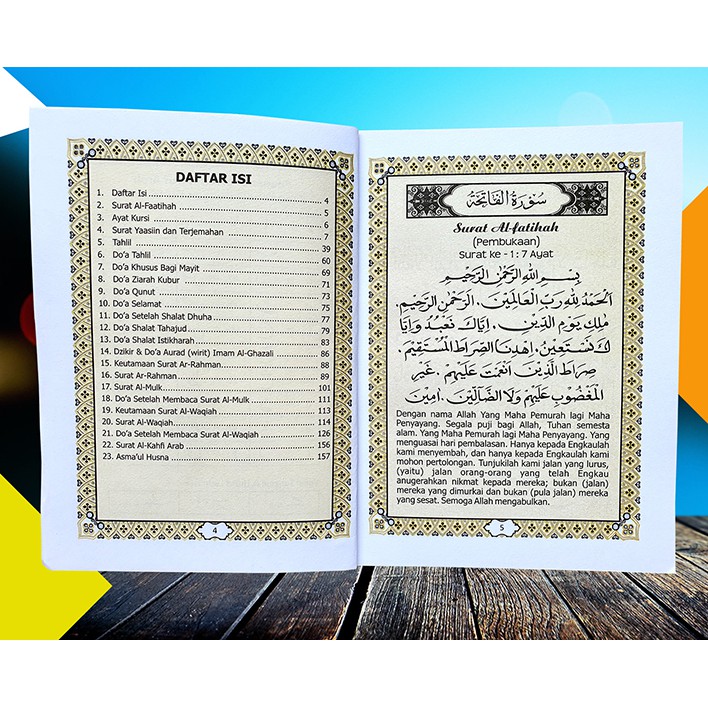 DAFTAR ISI
1. Daftar Isi ........ 4
2. Surat Al-Faatihah ........ 5
3. Ayat Kursi ........ 6
4. Surat Yaasiin dan Terjemahan ........ 7
5. Tahlil ........ 39
6. Do'a Tahlil ........ 60
7. Do'a Khusus Bagi Mayit ........ 69
8. Do'a Ziarah Kubur ........ 70
9. Do'a Qunut ........ 73
10. Do'a Selamat ........ 75
11. Do'a Setelah Shalat Dhuha ........ 77
12. Do'a Shalat Tahajud ........ 79
13. Do'a Shalat Istikharah ........ 83
14. Dzikir & Do'a Aurad (wirit) Imam Al-Ghazali ........ 86
15. Keutamaan Surat Ar-Rahman ........ 88
16. Surat Ar-Rahman ........ 89
17. Surat Al-Mulk ........ 101
18. Do'a Setelah Membaca Surat Al-Mulk ........ 111
19. Keutamaan Surat Al-Waqiah ........ 113
20. Surat Al-Waqiah ........ 114
21. Do'a Setelah Membaca Surat Al-Waqiah ........ 126
22. Surat Al-Kahfi Arab ........ 156
23. Asma'ul Husna ........ 157
4
سُوْرَةُ الْفَاتِحَةُ
Surat Al-fatihah
(Pembukaan)
Surat ke - 1 : 7 Ayat
بِسْمِ اللهِ الرَّحْمٰنِ الرَّحِيْمِ
اَلْحَمْدُ لِلّٰهِ رَبِّ الْعَالَمِيْنَ. الرَّحْمٰنِ الرَّحِيْمِ.
مٰلِكِ يَوْمِ الدِّيْنِ. اِيَّاكَ نَعْبُدُ وَاِيَّا
كَ نَسْتَعِيْنُ. اِهْدِنَا الصِّرَاطَ الْمُسْتَقِيْمَ.
صِرَاطَ الَّذِيْنَ اَنْعَمْتَ عَلَيْهِمْ. غَيْرِ
الْمَغْضُوْبِ عَلَيْهِمْ وَلَا الضَّآلِّيْنَ. اٰمِيْن
Dengan nama Allah Yang Maha Pemurah lagi Maha
Penyayang. Segala puji bagi Allah, Tuhan semesta
alam. Yang Maha Pemurah lagi Maha Penyayang. Yang
menguasai hari pembalasan. Hanya kepada Engkaulah
kami menyembah, dan hanya kepada Engkaulah kami
mohon pertolongan. Tunjukilah kami jalan yang lurus,
(yaitu) jalan orang-orang yang telah Engkau
anugerahkan nikmat kepada mereka; bukan (jalan)
mereka yang dimurkai dan bukan (pula jalan) mereka
yang sesat. Semoga Allah mengabulkan.
5